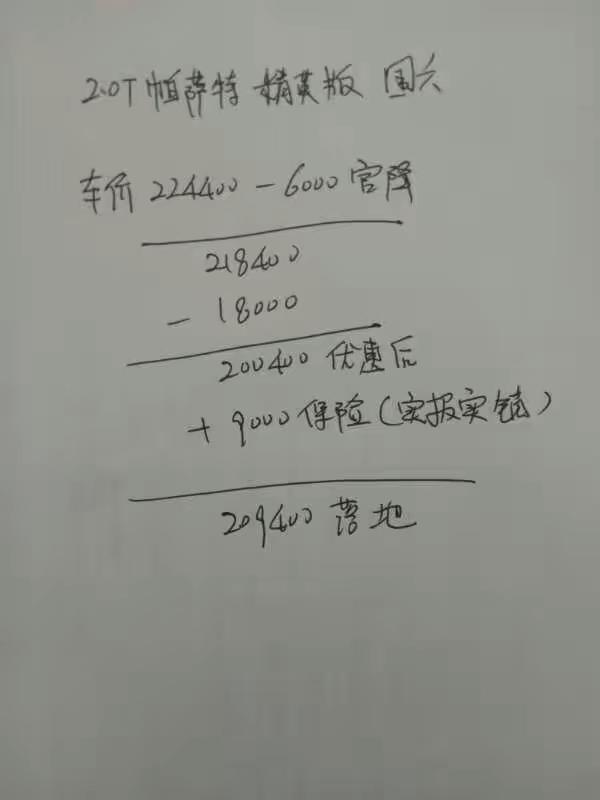 2.0T 帕萨特 精英版 国六
车价 224400 - 6000 官降
218400
- 18000
200400 优惠后
+ 9000 保险(实报实销)
209400 落地